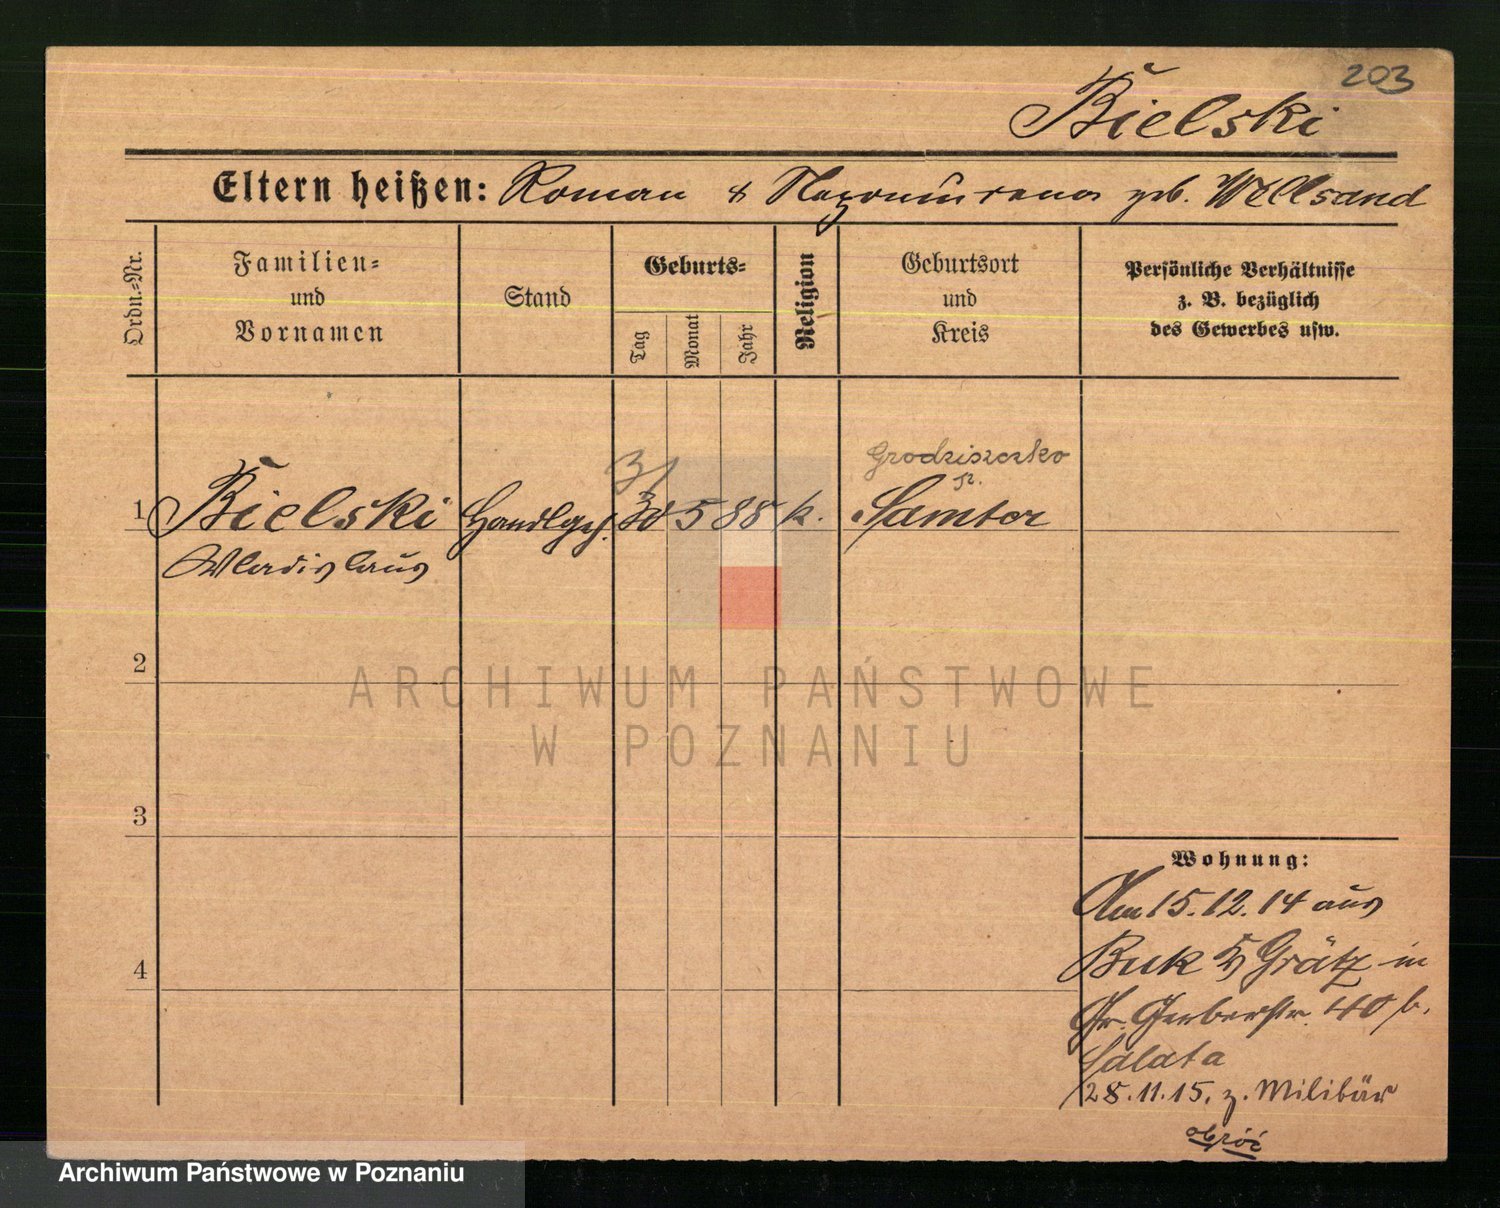 203
Bielski
Eltern heißen: Roman & geb. Wellsand
Ordn.-Nr.
Familien-
und
Vornamen
Stand
Geburts-
Tag
Monat
Jahr
Religion
Geburtsort
und
Kreis
Persönliche Verhältnisse
z. B. bezüglich
des Gewerbes usw.
Grodziszczko
31
1 Bielski Handlgeh. 30 5 88 k. Samter
Wladislaus
2
ARCHIWUM PAŃSTWOWE
W POZNANIU
3
Wohnung:
Am 15.12.14 aus
Buk Grätz in
Gr. Gerberstr. 40 b.
Salata
4
28.11.15. z. Militär
obróć
Archiwum Państwowe w Poznaniu